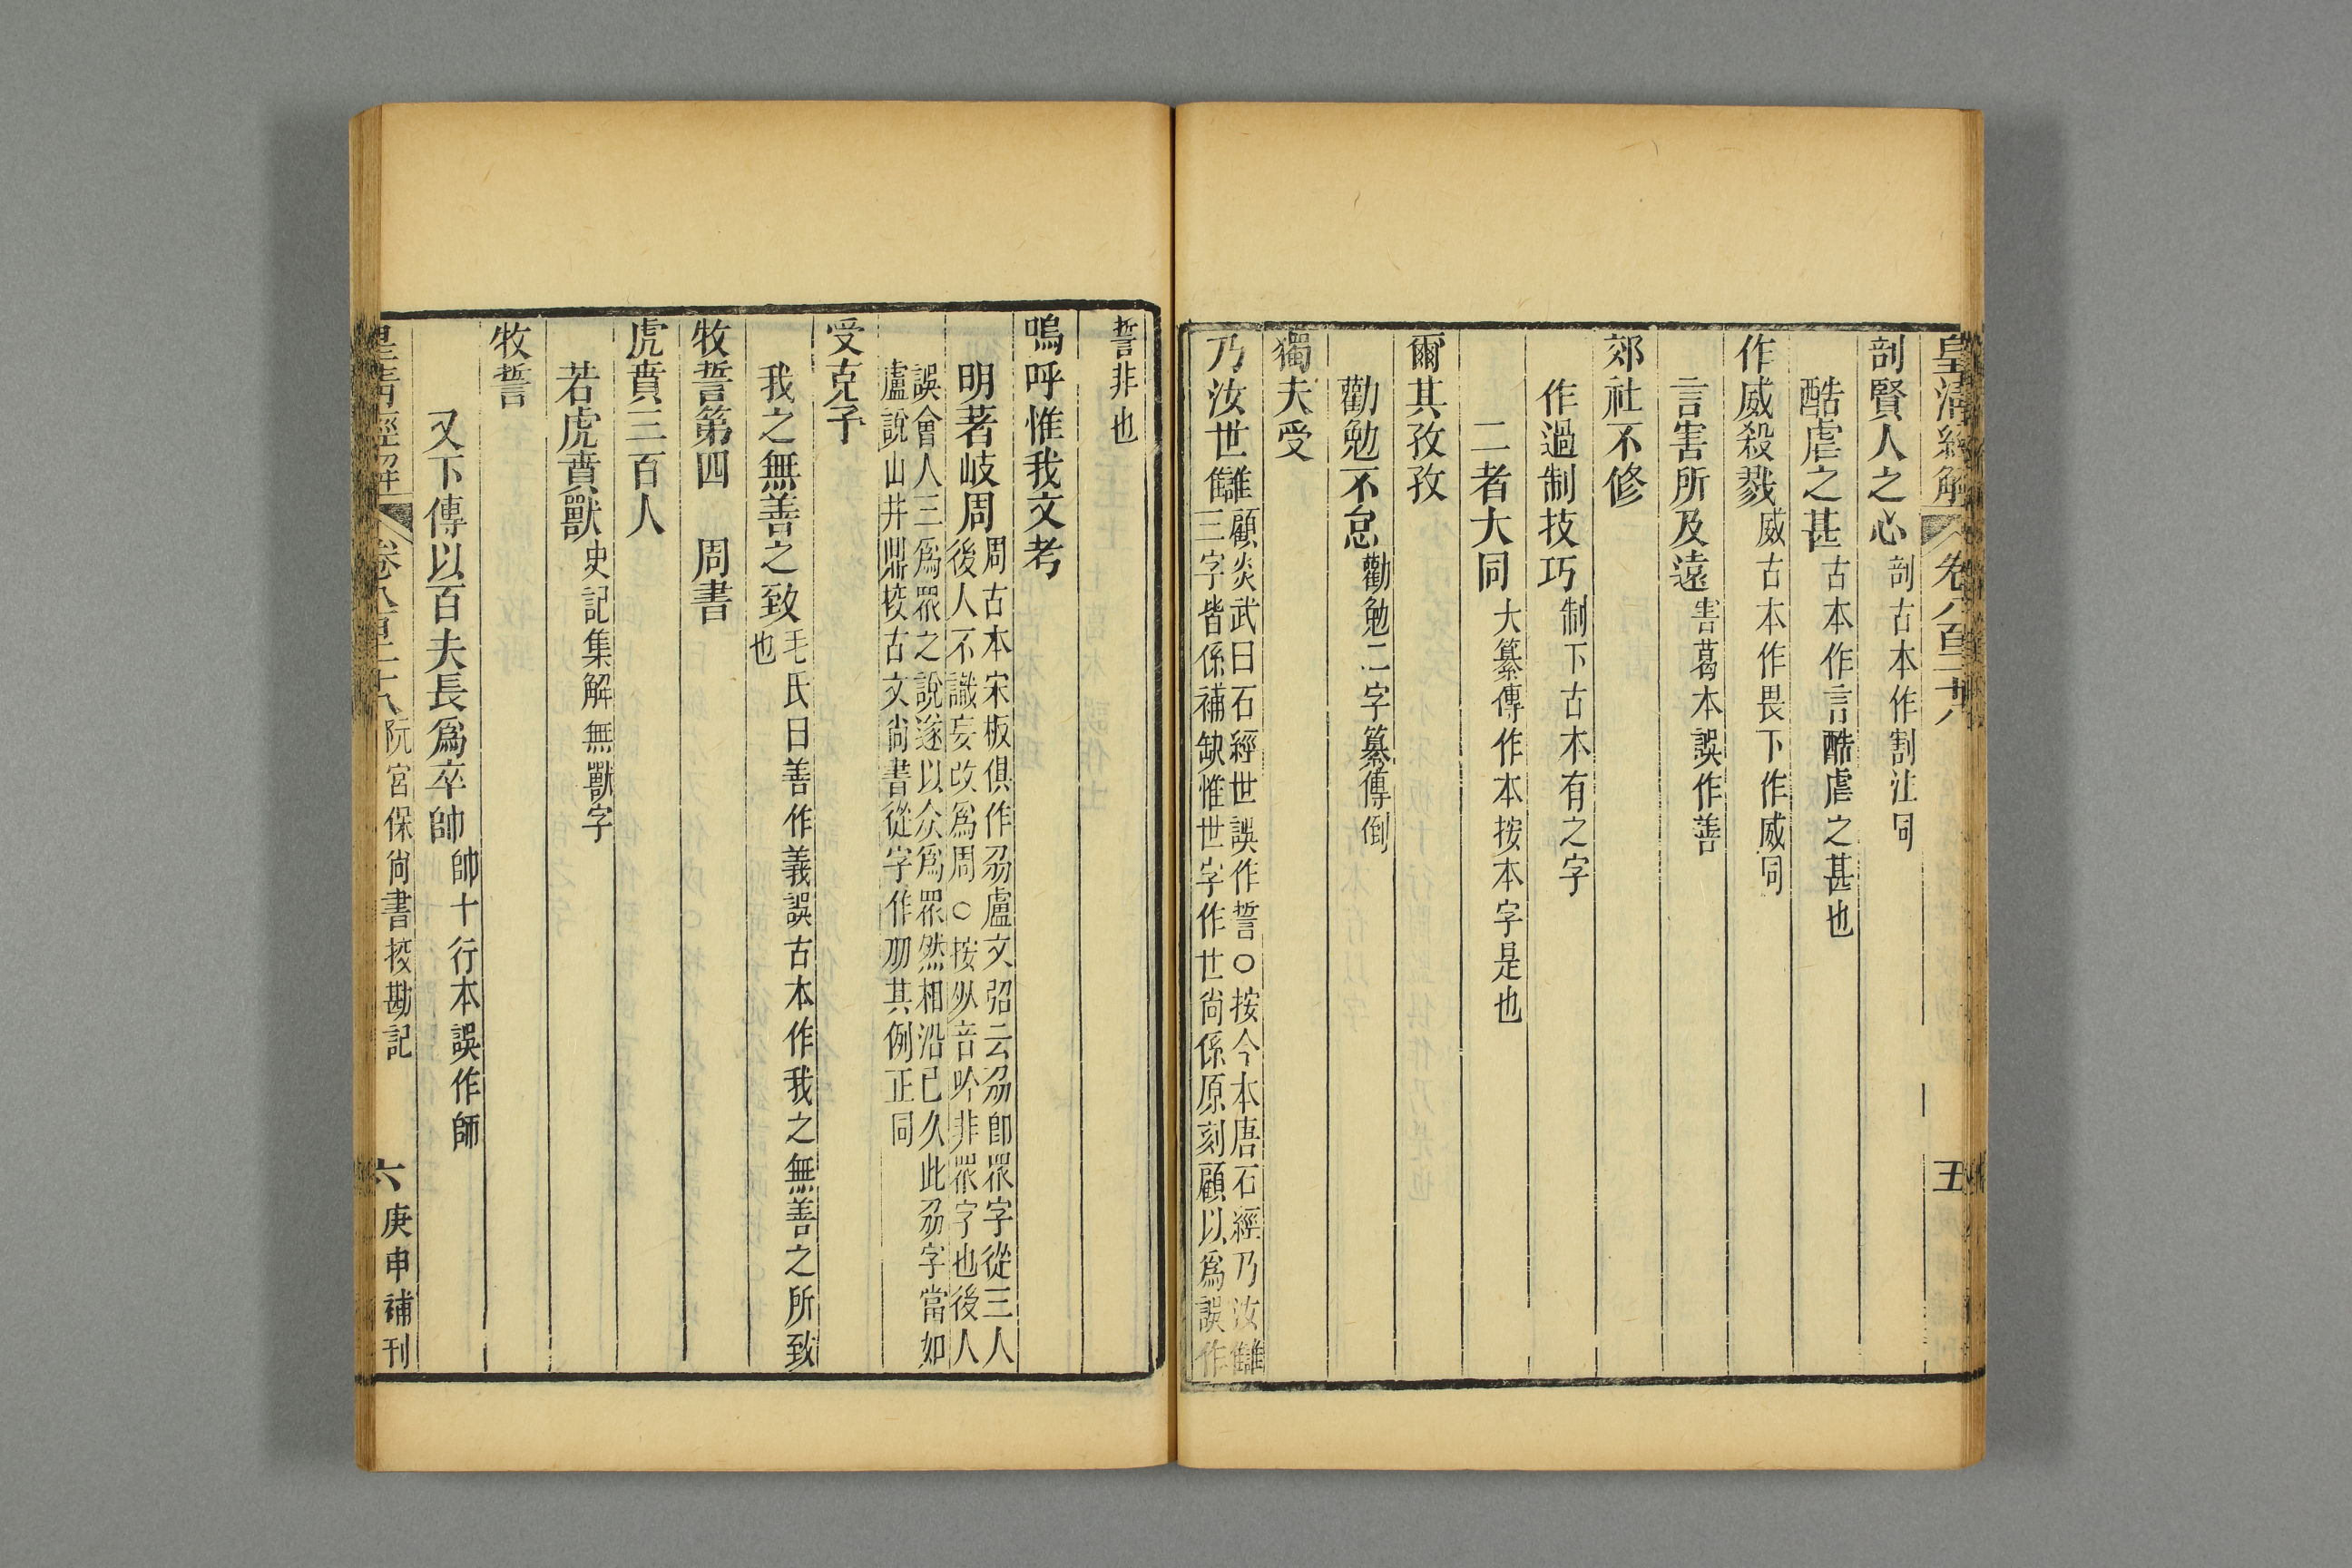 皇清經解 卷八百二十八 五
剖賢人之心剖古本作割注同
酷虐之甚古本作言酷虐之甚也
作威殺戮威古本作畏下作威同
言害所及遠害葛本誤作善
郊社不修
作過制技巧制下古本有之字
二者大同大纂傳作本按本字是也
爾其孜孜
勸勉不怠勸勉二字纂傳倒
獨夫受
乃汝世讎顧炎武曰石經世誤作誓○按今本唐石經乃汝讎
三字皆係補缺惟世字作丗尚係原刻顧以爲誤作
誓非也
嗚呼惟我文考
明著岐周周古本宋板俱作𠱾盧文弨云𠱾卽眾字從三人
後人不識妄改爲周○按㐺音吟非眾字也後人
誤會人三爲眾之說遂以㐺爲眾然相沿已久此𠱾字當如
盧說山井鼎挍古文尚書從字作刕其例正同
受克予
我之無善之致毛氏曰善作義誤古本作我之無善之所致
也
牧誓第四 周書
虎賁三百人
若虎賁獸史記集解無獸字
牧誓
又下傳以百夫長爲卒帥帥十行本誤作師
皇清經解 卷八百二十八 阮宮保尚書挍勘記 六 庚申補刊